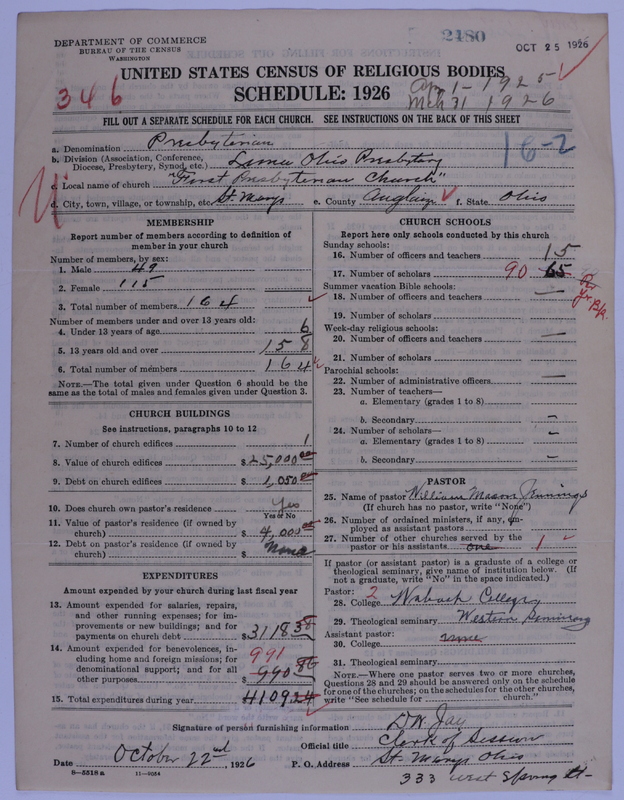 2480
DEPARTMENT OF COMMERCE
BUREAU OF THE CENSUS
WASHINGTON
OCT 25 1926
UNITED STATES CENSUS OF RELIGIOUS BODIES
SCHEDULE: 1926
346
Apr 1 - 1925
Mch 31 1926
FILL OUT A SEPARATE SCHEDULE FOR EACH CHURCH. SEE INSTRUCTIONS ON THE BACK OF THIS SHEET
16-2
a. Denomination Presbyterian
b. Division (Association, Conference, Diocese, Presbytery, Synod, etc.) Lima Ohio Presbytery
c. Local name of church "First Presbyterian Church"
d. City, town, village, or township, etc. St. Marys e. County Auglaize f. State Ohio
MEMBERSHIP
Report number of members according to definition of
member in your church
Number of members, by sex:
1. Male 49
2. Female 115
3. Total number of members 164
Number of members under and over 13 years old:
4. Under 13 years of age 6
5. 13 years old and over 158
6. Total number of members 164
NOTE.—The total given under Question 6 should be the
same as the total of males and females given under Question 3.
CHURCH BUILDINGS
See instructions, paragraphs 10 to 12
7. Number of church edifices 1
8. Value of church edifices $25,000.00
9. Debt on church edifices $1,050.00
10. Does church own pastor's residence? Yes
Yes or No
11. Value of pastor's residence (if owned by
church) $4,000.00
12. Debt on pastor's residence (if owned by
church) $None
EXPENDITURES
Amount expended by your church during last fiscal year
13. Amount expended for salaries, repairs,
and other running expenses; for im-
provements or new buildings; and for
payments on church debt $3118 38
14. Amount expended for benevolences, in-
cluding home and foreign missions; for
denominational support; and for all
other purposes $990 86
991
15. Total expenditures during year 4109 24
CHURCH SCHOOLS
Report here only schools conducted by this church
Sunday schools:
16. Number of officers and teachers 15
17. Number of scholars 90 65
Summer vacation Bible schools:
18. Number of officers and teachers —
19. Number of scholars
Week-day religious schools:
20. Number of officers and teachers —
21. Number of scholars
Parochial schools:
22. Number of administrative officers —
23. Number of teachers—
a. Elementary (grades 1 to 8)
b. Secondary –
24. Number of scholars—
a. Elementary (grades 1 to 8) –
b. Secondary –
PASTOR
25. Name of pastor William Mason Jennings
(If church has no pastor, write "None")
26. Number of ordained ministers, if any, em-
ployed as assistant pastors
27. Number of other churches served by the
pastor or his assistants one 1
If pastor (or assistant pastor) is a graduate of a college or
theological seminary, give name of institution below. (If
not a graduate, write "No" in the space indicated.)
Pastor: 2
28. College Wabash College
29. Theological seminary Western Seminary
Assistant pastor:
30. College
31. Theological seminary
NOTE.—Where one pastor serves two or more churches,
Questions 28 and 29 should be answered only on the schedule
for one of the churches; on the schedules for the other churches,
write "See schedule for church."
Signature of person furnishing information D.W. Jay
Official title Clerk of Session
Date October 22nd, 1926 P. O. Address St. Marys Ohio
333 West Spring St-
8—5518 a 11—9034